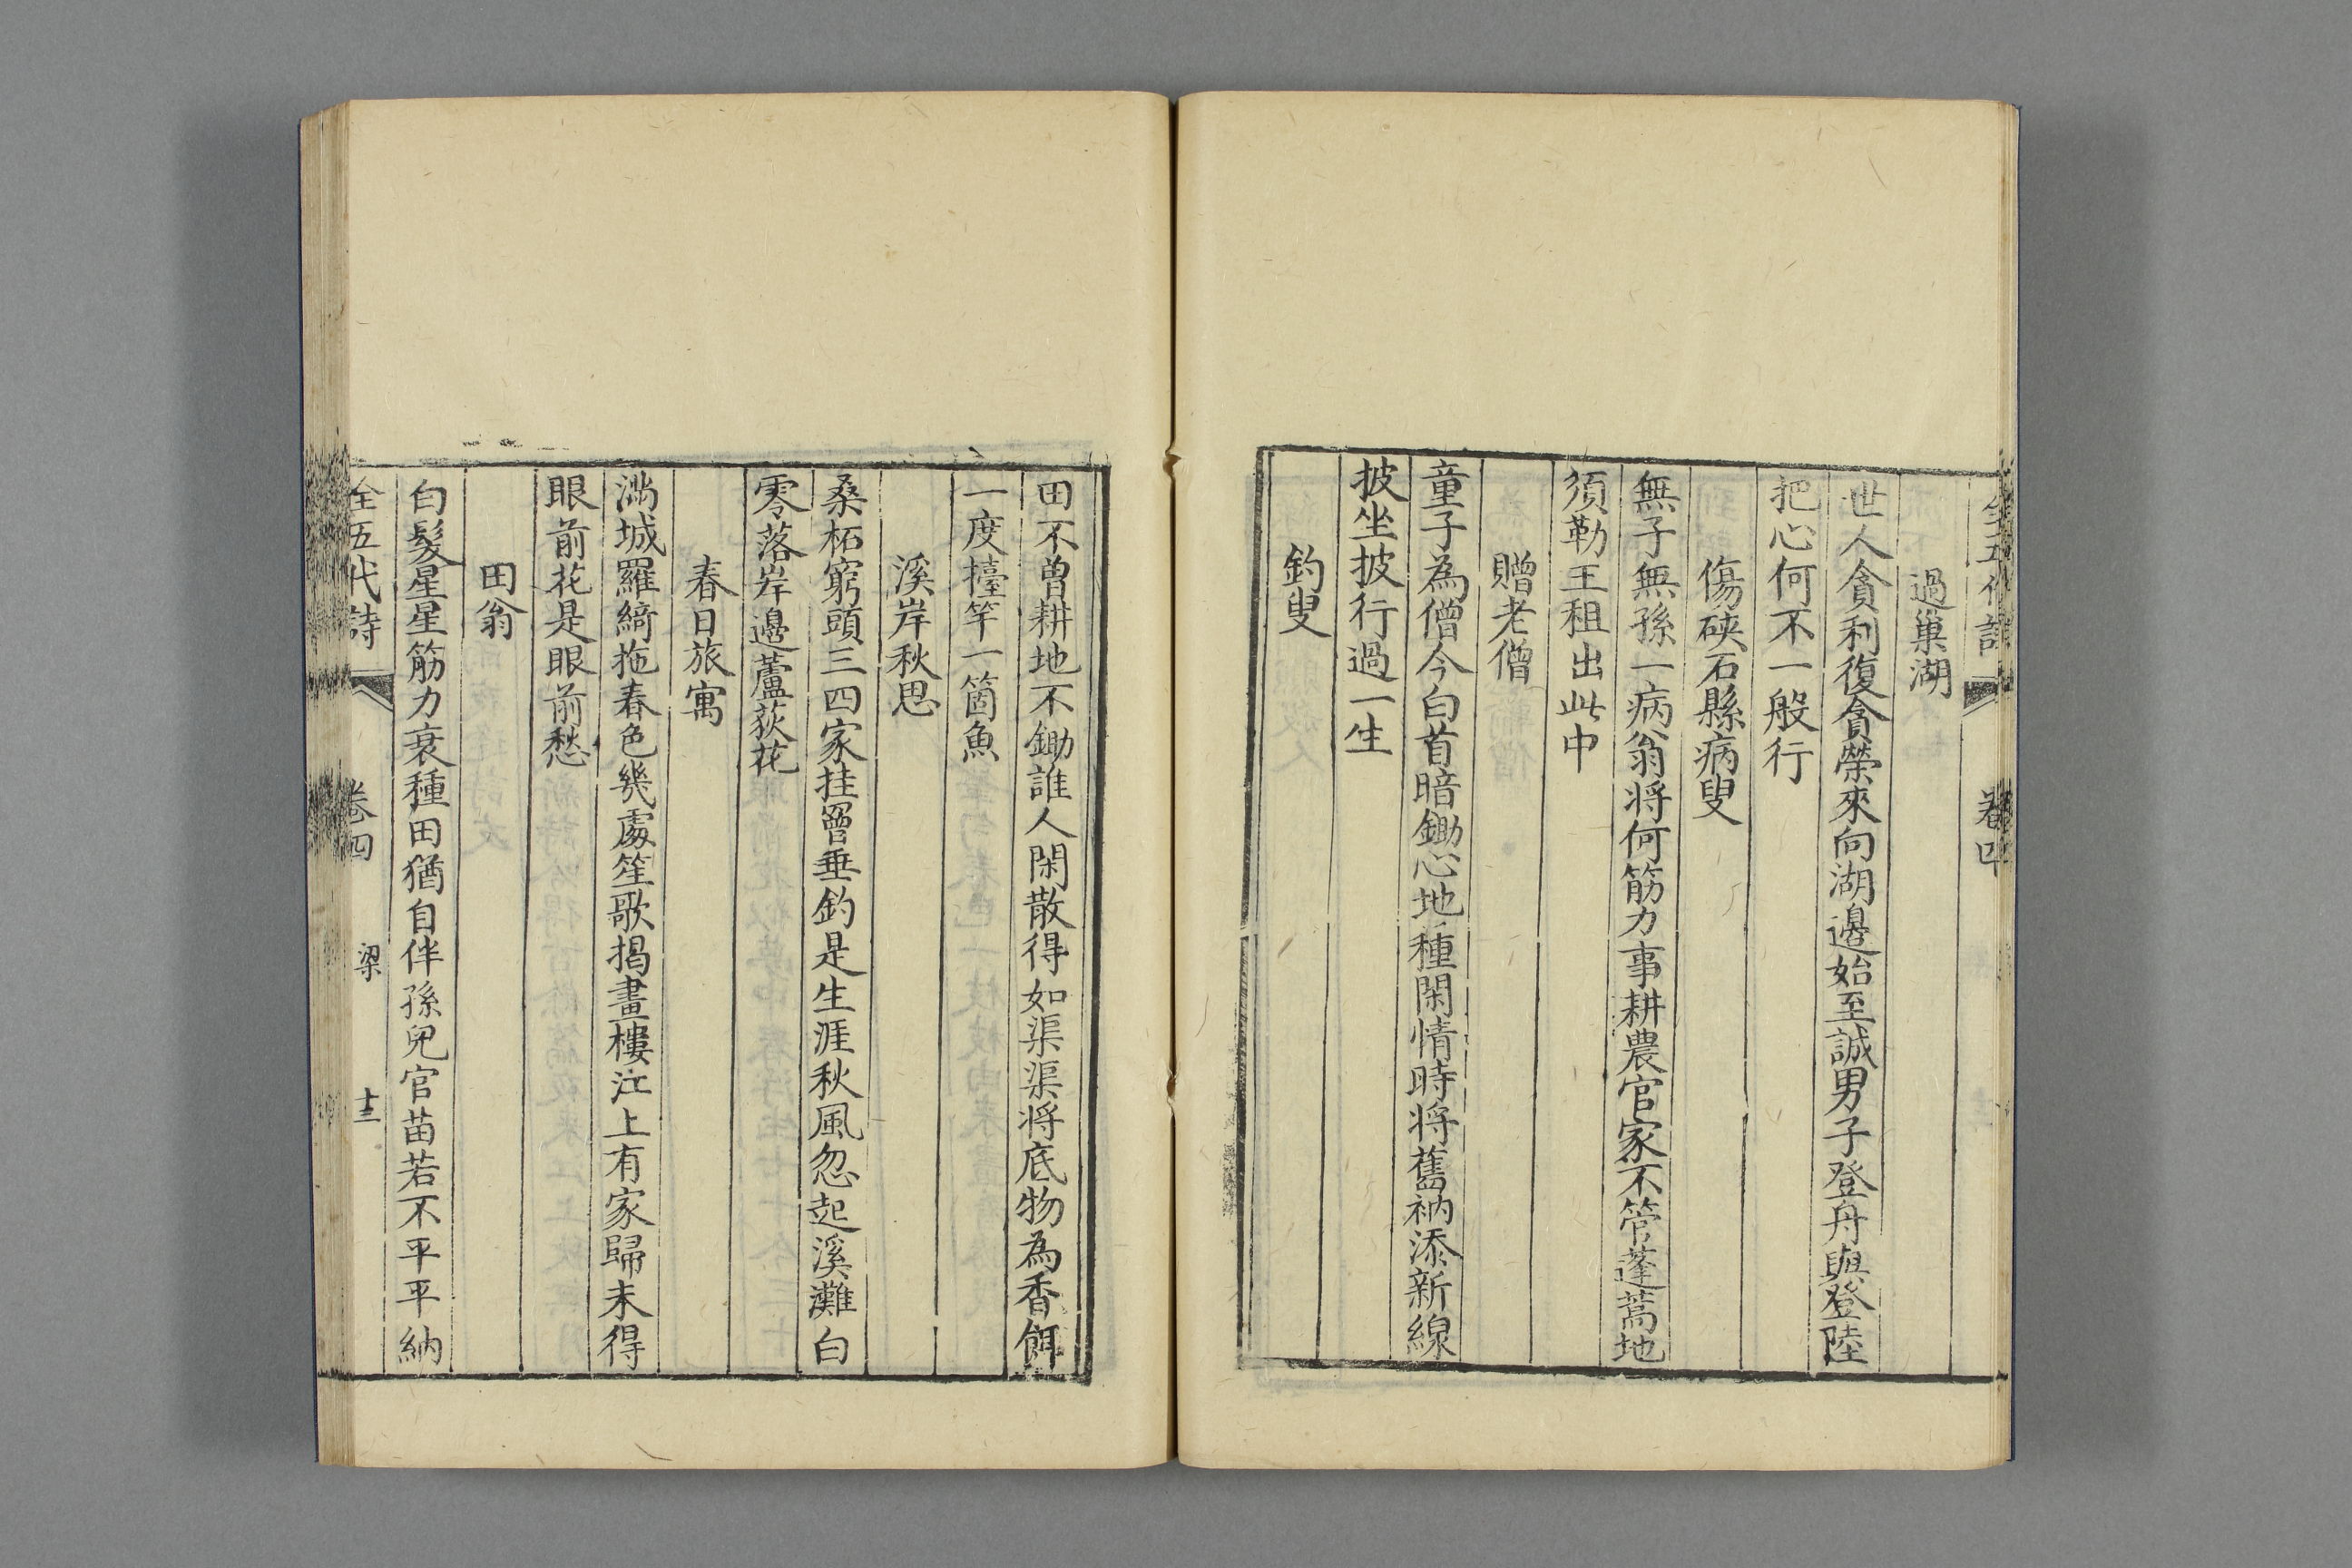 全五代詩 卷四
過巢湖
世人貪利復貪榮來向湖邊始至誠男子登舟與登陸
把心何不一般行
傷硤石縣病叟
無子無孫一病翁将何筋力事耕農官家不管蓬蒿地
須勒王租出此中
贈老僧
童子為僧今白首暗鋤心地種閑情時将舊衲添新線
披坐披行過一生
釣叟
田不曽耕地不鋤誰人閑散得如渠渠将底物為香餌
一度擡竿一箇魚
溪岸秋思
桑柘窮頭三四家挂罾垂釣是生涯秋風忽起溪灘白
零落岸邊蘆荻花
春日旅寓
滿城羅綺拖春色幾處笙歌揭畫樓江上有家歸未得
眼前花是眼前愁
田翁
白髮星星筋力衰種田猶自伴孫兒官苗若不平平納
全五代詩 卷四 梁 十三